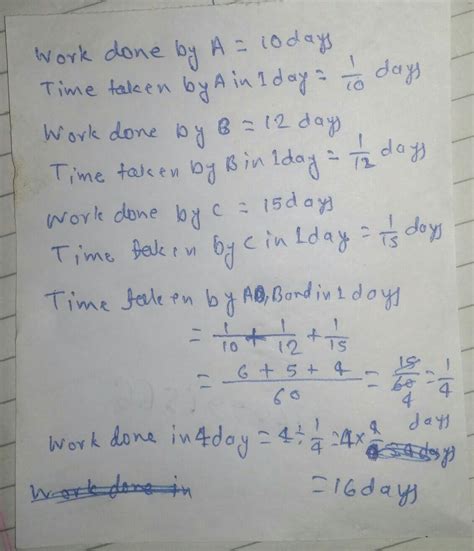 Work done by A = 10 days
Time taken by A in 1 day = 1/10 days
Work done by B = 12 days
Time taken by B in 1 day = 1/12 days
Work done by C = 15 days
Time taken by C in 1 day = 1/15 days
Time taken by A, B and in 1 days
= 1/10 + 1/12 + 1/15
= 6 + 5 + 4 / 60 = 15/60 4 = 1/4
Work done in 4 day = 4 ÷ 1/4 = 4 × days
Work done in = 16 days